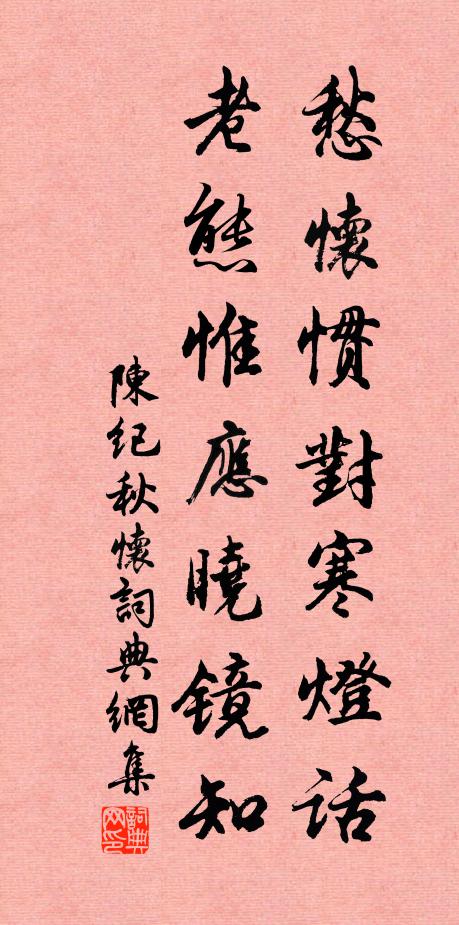 愁懷慣對寒燈話
老態惟應曉鏡知
陳紀秋懷詞典網集
詞典网印